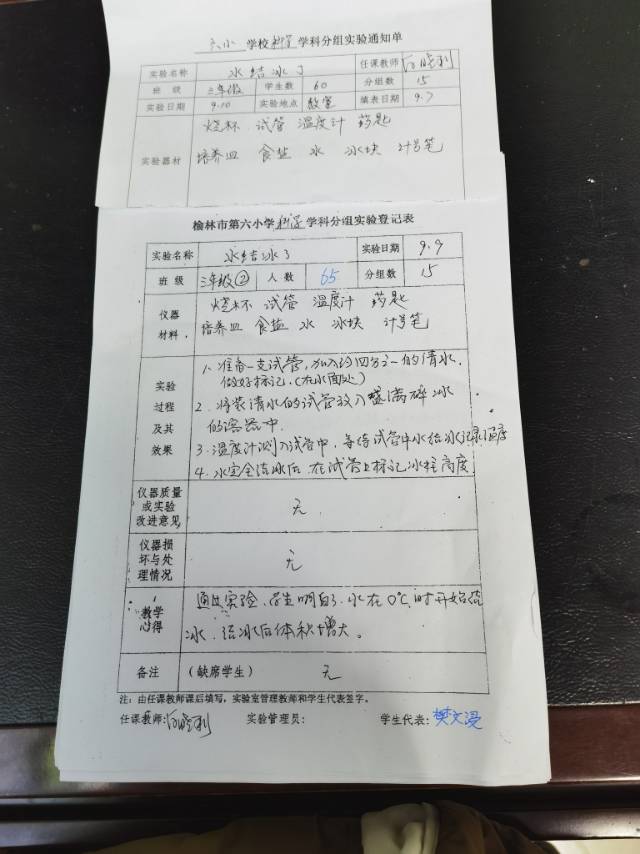 六小 学校科学学科分组实验通知单
实验名称 水结冰了 任课教师
班 级 三年级 学生数 60 分组数 15
实验日期 9.10 实验地点 教室 填表日期 9.7
实验器材 烧杯 试管 温度计 药匙
培养皿 食盐 水 冰块 计号笔
榆林市第六小学科学学科分组实验登记表
实验名称 水结冰了 实验日期 9.9
班 级 三年级② 人 数 65 分组数 15
仪器材料 烧杯 试管 温度计 药匙
培养皿 食盐 水 冰块 计号笔
实验过程及其效果
1. 准备一支试管,加入约四分之一的清水,
做好标记.(在水面处)
2. 将装清水的试管放入盛满碎冰
的容器中.
3. 温度计测入试管中,等待试管中水结冰记录温度
4. 水完全结冰后,在试管上标记冰柱高度
仪器质量或实验改进意见 无
仪器损坏与处理情况 无
教学心得 通过实验,学生明白了,水在0℃时开始结
冰,结冰后体积增大。
备注 (缺席学生) 无
注:由任课教师课后填写,实验室管理教师和学生代表签字。
任课教师: 实验管理员: 学生代表:樊文浸